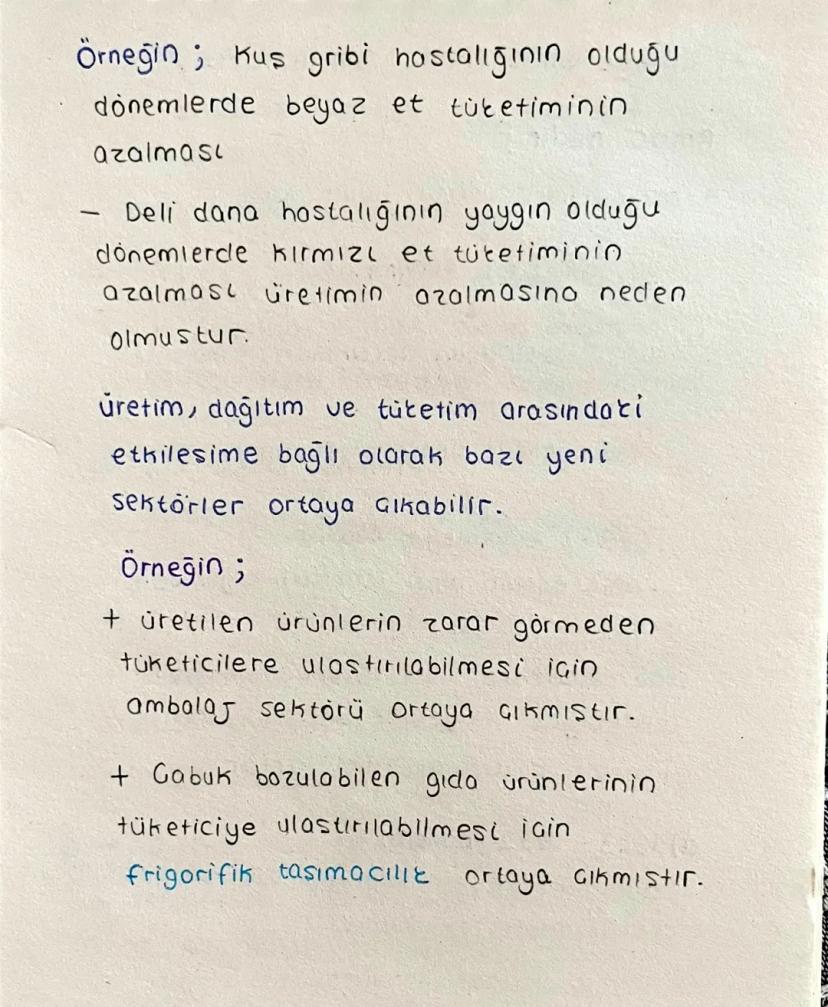 Örneğin ; Kuş gribi hastalığının olduğu
dönemlerde beyaz et tüketiminin
azalması
- Deli dana hastalığının yaygın olduğu
dönemlerde kırmızı et tüketiminin
azalması üretimin azalmasına neden
olmustur.
üretim, dağıtım ve tüketim arasındaki
etkilesime bağlı olarak bazı yeni
sektörler ortaya cıkabilir.
Örneğin ;
+ üretilen ürünlerin zarar görmeden
tüketicilere ulastırılabilmesi icin
ambalaj sektörü ortaya cıkmıstır.
+ Cabuk bozulabilen gıda ürünlerinin
tüketiciye ulastırılabilmesi icin
frigorifik tasımacılık ortaya cıkmıstır.